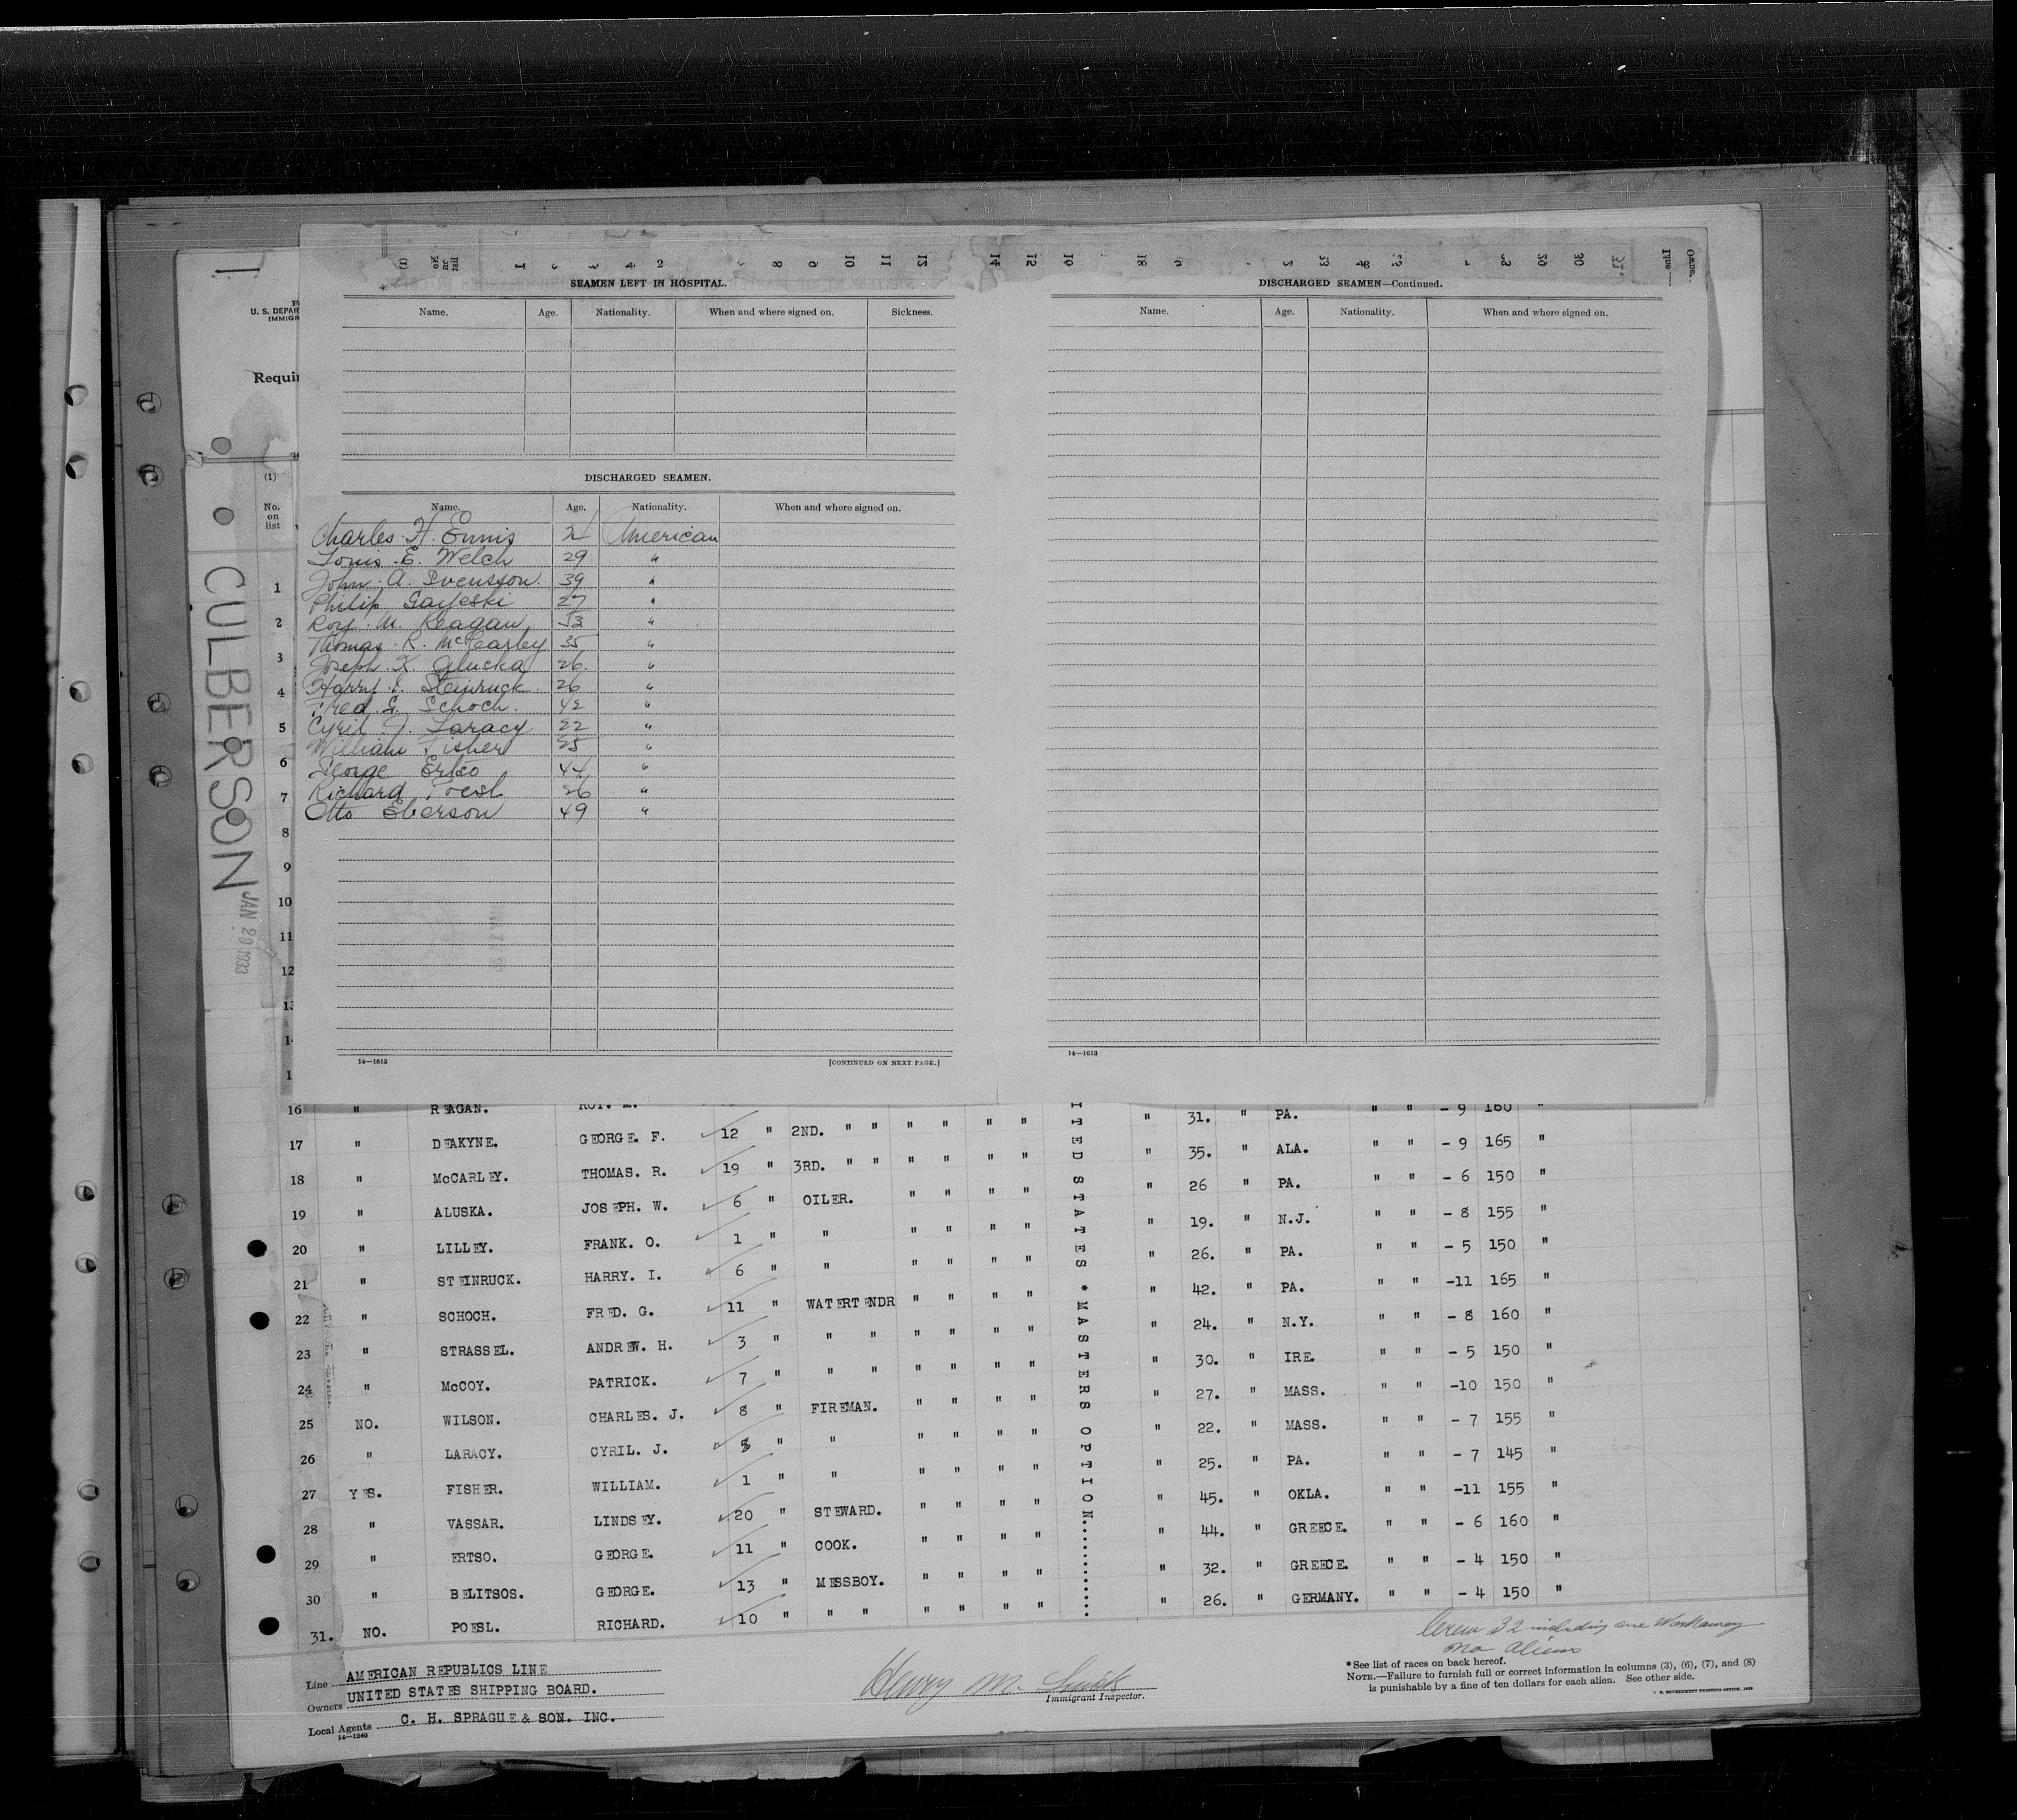 U. S. DEPAR
IMMIGR
Requir
(1)
No.
on
list
CULBERSON
JAN 29 1933
SEAMEN LEFT IN HOSPITAL.
Name. Age. Nationality. When and where signed on. Sickness.
DISCHARGED SEAMEN.
Name. Age. Nationality. When and where signed on.
Charles H. Ennis American
Louis E. Welch 29 "
John A. Svensson. 39 "
Philip 27 "
Roy M. Reagan 53 "
Thomas R. McCarley 35 "
Joseph Aluska 26. "
Harry I. Steinruck. 26 "
Fred G. Schoch. 42 "
Cyril J. Laracy 22 "
William Fisher 25 "
George Ertso 44 "
Richard Poesl 26 "
Otto Eberson 49 "
14—1613 [CONTINUED ON NEXT PAGE.]
DISCHARGED SEAMEN—Continued.
Name. Age. Nationality. When and where signed on.
14—1613
1
2
3
4
5
6
7
8
9
10
11
12
13
14
1
16 " REAGAN. ROY. M. " 31. " PA. " " - 9 160 "
17 " DEAKYNE. GEORGE. F. 12 " 2ND. " " " " " " " 35. " ALA. " " - 9 165 "
18 " McCARLEY. THOMAS. R. 19 " 3RD. " " " " " " " 26 " PA. " " - 6 150 "
19 " ALUSKA. JOSEPH. W. 6 " OILER. " " " " " 19. " N.J. " " - 8 155 "
20 " LILLEY. FRANK. O. 1 " " " " " " " 26. " PA. " " - 5 150 "
21 " STEINRUCK. HARRY. I. 6 " " " " " " " 42. " PA. " " -11 165 "
22 " SCHOCH. FRED. G. 11 " WATERTENDR " " " " " 24. " N.Y. " " - 8 160 "
23 " STRASSEL. ANDREW. H. 3 " " " " " " " " 30. " IRE. " " - 5 150 "
24 " McCOY. PATRICK. 7 " " " " " " " " 27. " MASS. " " -10 150 "
25 NO. WILSON. CHARLES. J. 8 " FIREMAN. " " " " " 22. " MASS. " " - 7 155 "
26 " LARACY. CYRIL. J. 8 " " " " " " " 25. " PA. " " - 7 145 "
27 YES. FISHER. WILLIAM. 1 " " " " " " " 45. " OKLA. " " -11 155 "
28 " VASSAR. LINDSEY. 20 " STEWARD. " " " " " 44. " GREECE. " " - 6 160 "
29 " ERTSO. GEORGE. 11 " COOK. " " " " " 32. " GREECE. " " - 4 150 "
30 " BELITSOS. GEORGE. 13 " MESSBOY. " " " " " 26. " GERMANY. " " - 4 150 "
31. NO. POESL. RICHARD. 10 " " " " " " "
ITED STATES * MASTERS OPTION..........
Crew 32 including one Workaway
no aliens
Line AMERICAN REPUBLICS LINE
Owners UNITED STATES SHIPPING BOARD.
Local Agents C. H. SPRAGUE & SON. INC.
14—1240
Henry M. Smith
Immigrant Inspector.
*See list of races on back hereof.
NOTE.—Failure to furnish full or correct information in columns (3), (6), (7), and (8)
is punishable by a fine of ten dollars for each alien. See other side.